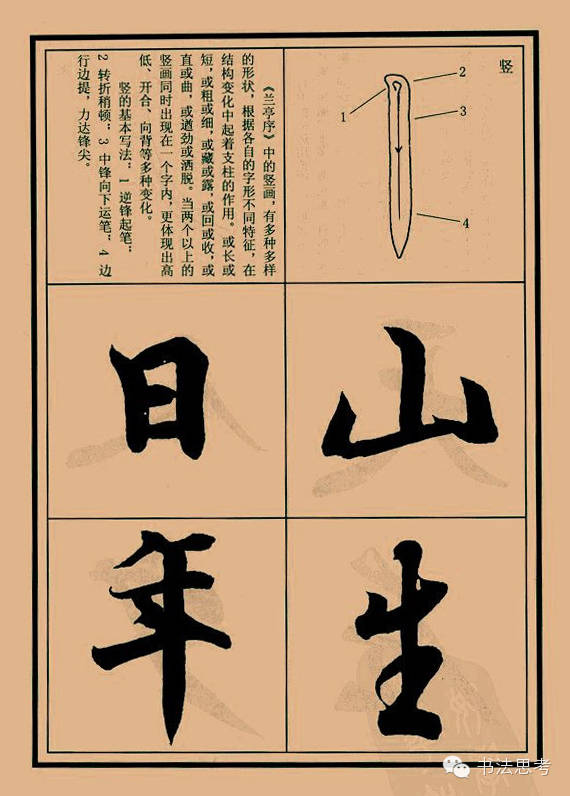 竖
1
2
3
4
《兰亭序》中的竖画，有多种多样
的形状，根据各自的字形不同特征，在
结构变化中起着支柱的作用。或长或
短，或粗或细，或藏或露，或回或收，或
直或曲，或遒劲或洒脱。当两个以上的
竖画同时出现在一个字内，更体现出高
低、开合、向背等多种变化。
竖的基本写法：1 逆锋起笔；
2 转折稍顿；3 中锋向下运笔；4 边
行边提，力达锋尖。
山
日
生
年
书法思考